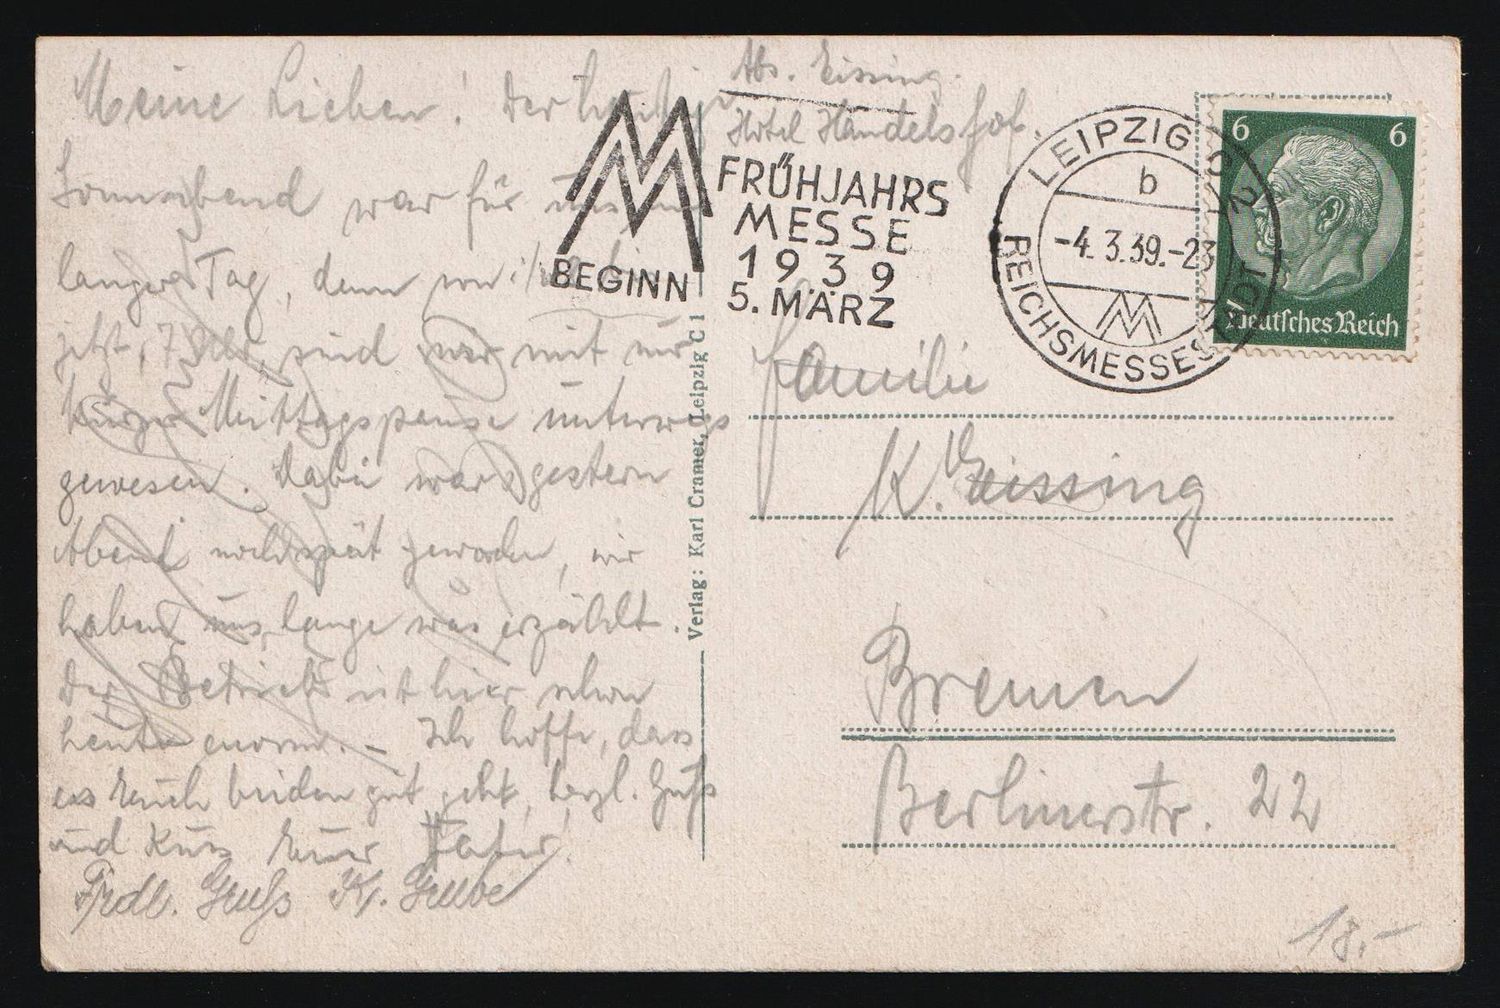 Meine Lieben! Der heutige
Sonnabend war für uns ein
langer Tag, denn wir
jetzt, 7 Uhr, sind wir mit nur
kurzer Mittagspause unterwegs
gewesen. Dabei war's gestern
Abend spät geworden, wir
haben uns lange was erzählt.
Der Betrieb ist hier schon
heute enorm. – Ich hoffe, dass
es Euch beiden gut geht, herzl. Gruß
und Kuss Euer Vater.
Frdl. Gruß K. Grube
Abs. Eissing.
Hotel Handelshof.
M
BEGINN
FRÜHJAHRS
MESSE
1939
5. MÄRZ
LEIPZIG C 2
b
-4.3.39.-23
M
REICHSMESSESTADT
6 6
Deutsches Reich
Verlag: Karl Cramer, Leipzig C 1
Familie
K. Eissing
Bremen
Berlinerstr. 22
18,-